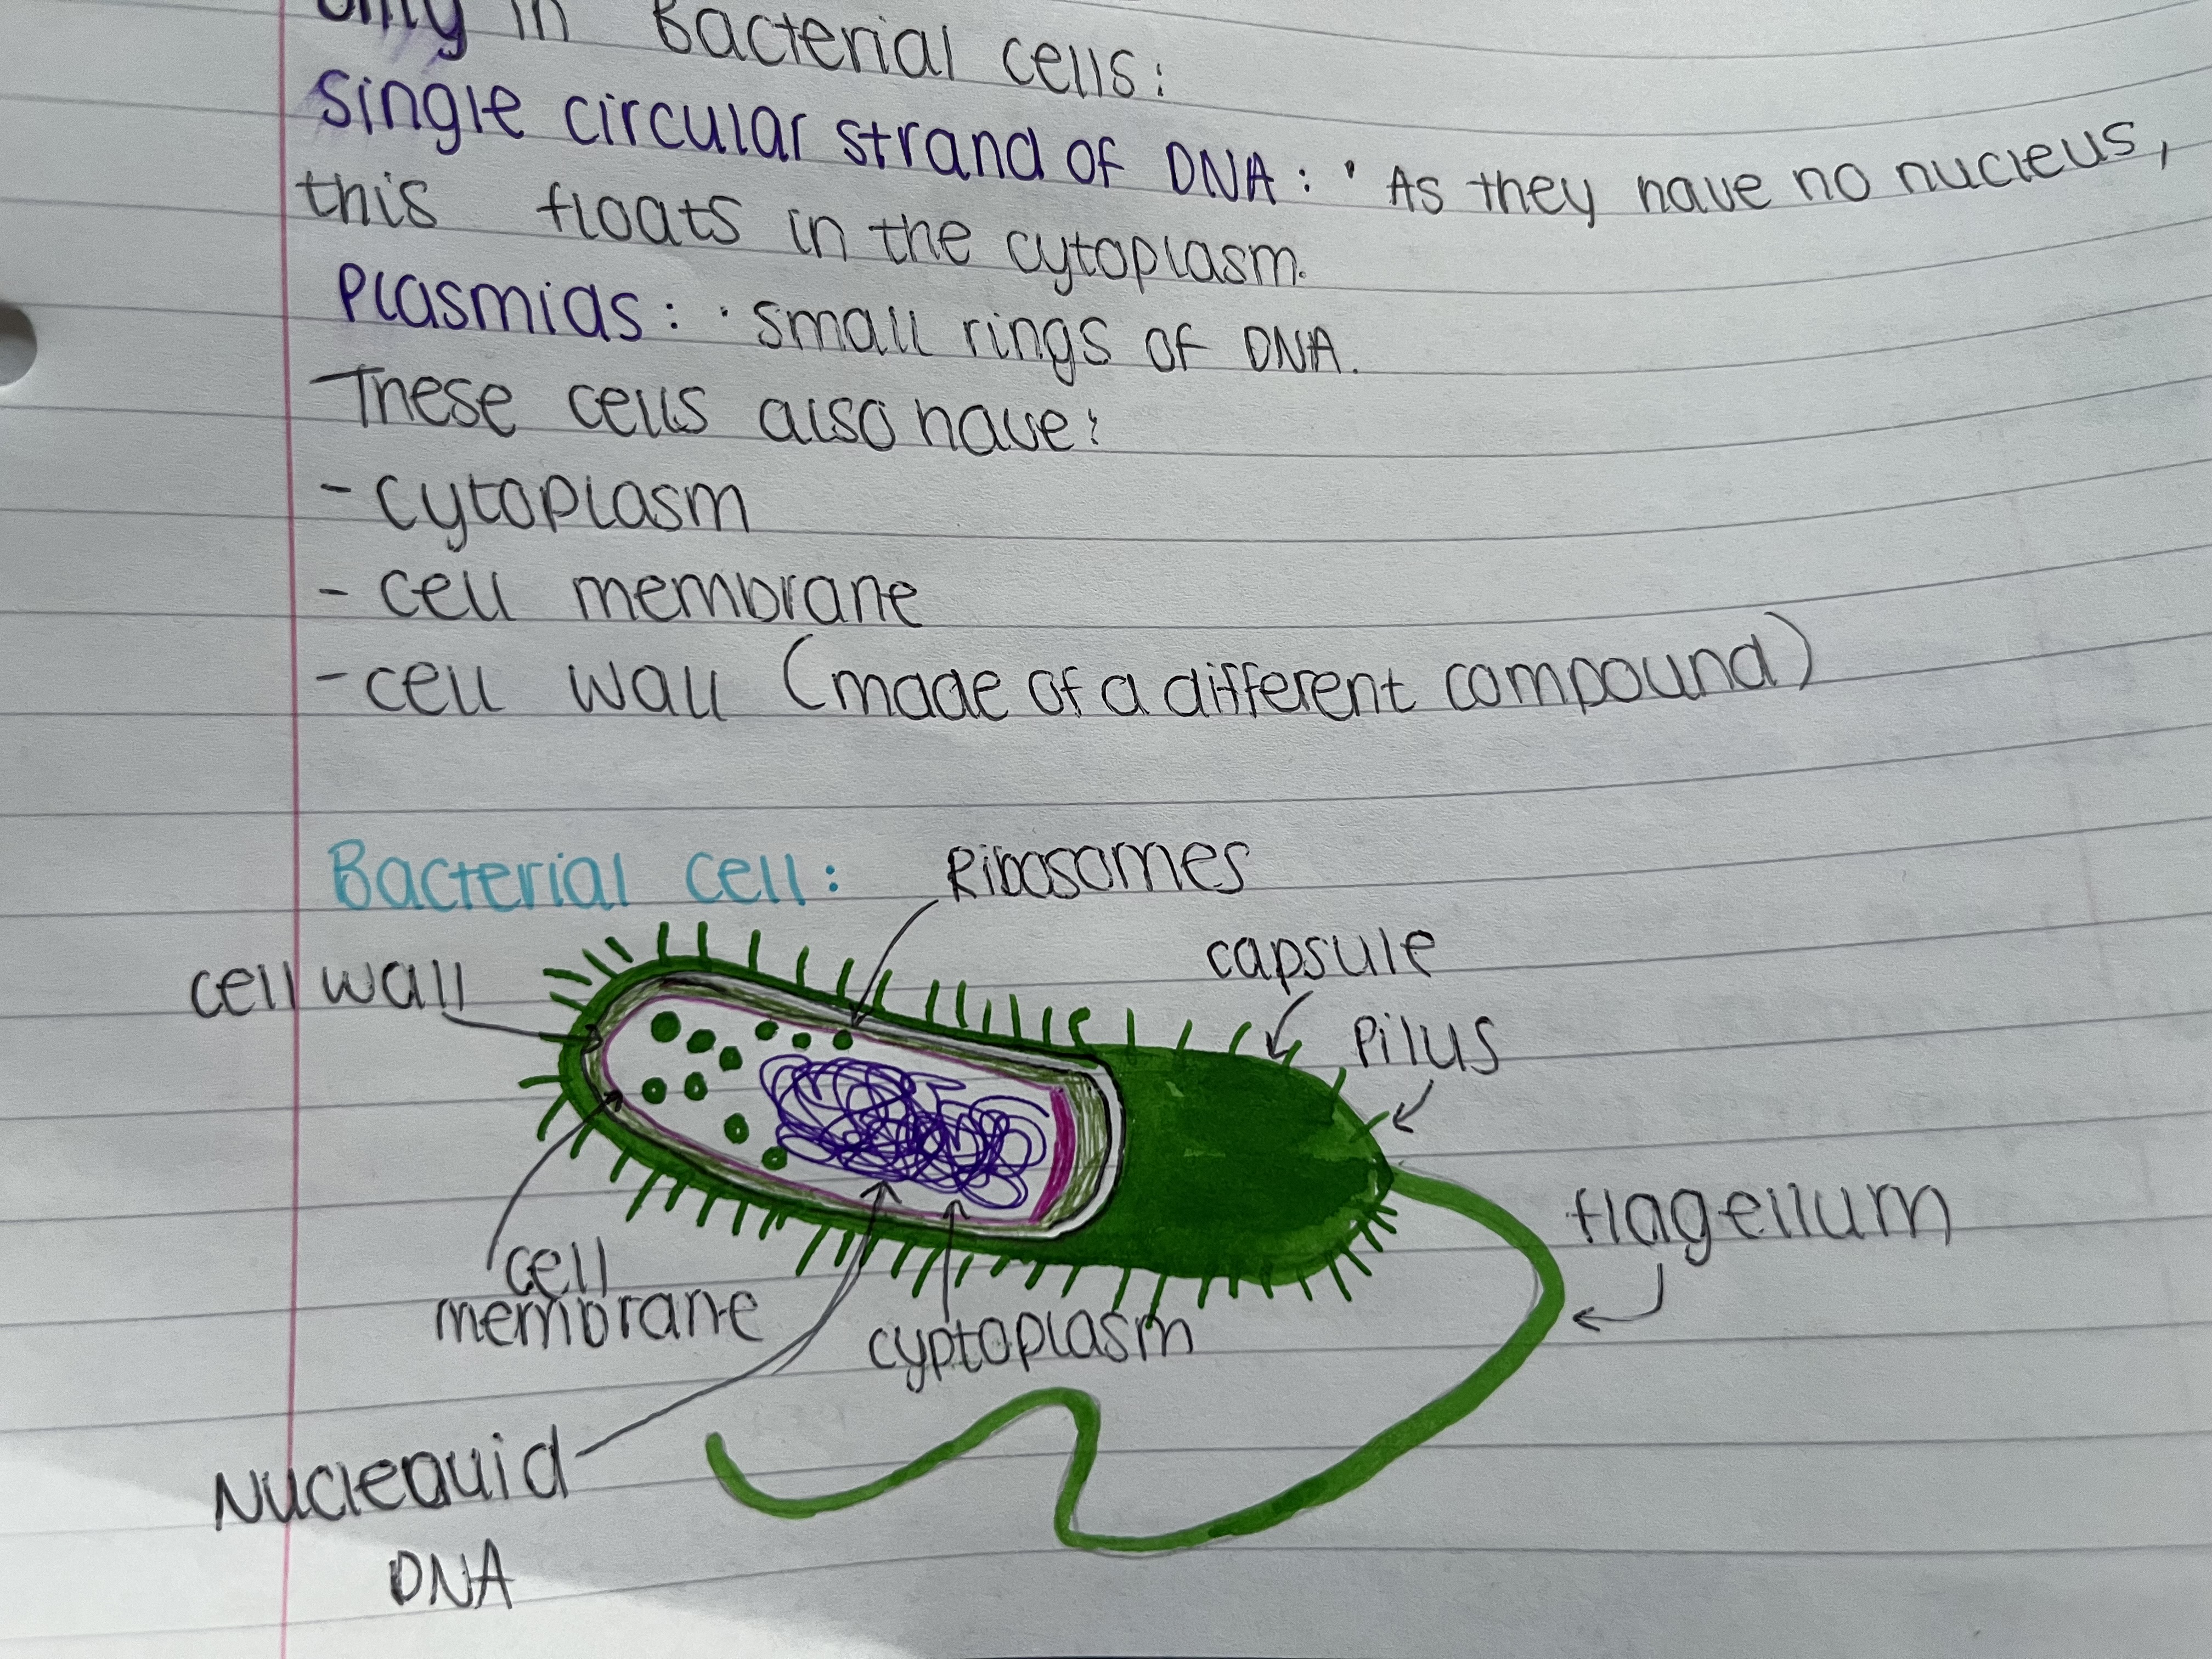 only in Bacterial cells:
Single circular strand of DNA: · As they have no nucleus,
this floats in the cytoplasm.
Plasmids: · small rings of DNA.
These cells also have:
- cytoplasm
- cell membrane
- cell wall (made of a different compound)
Bacterial cell:
Ribosomes
capsule
cell wall
Pilus
flagellum
cell
membrane
cyptoplasm
Nucleouid
DNA